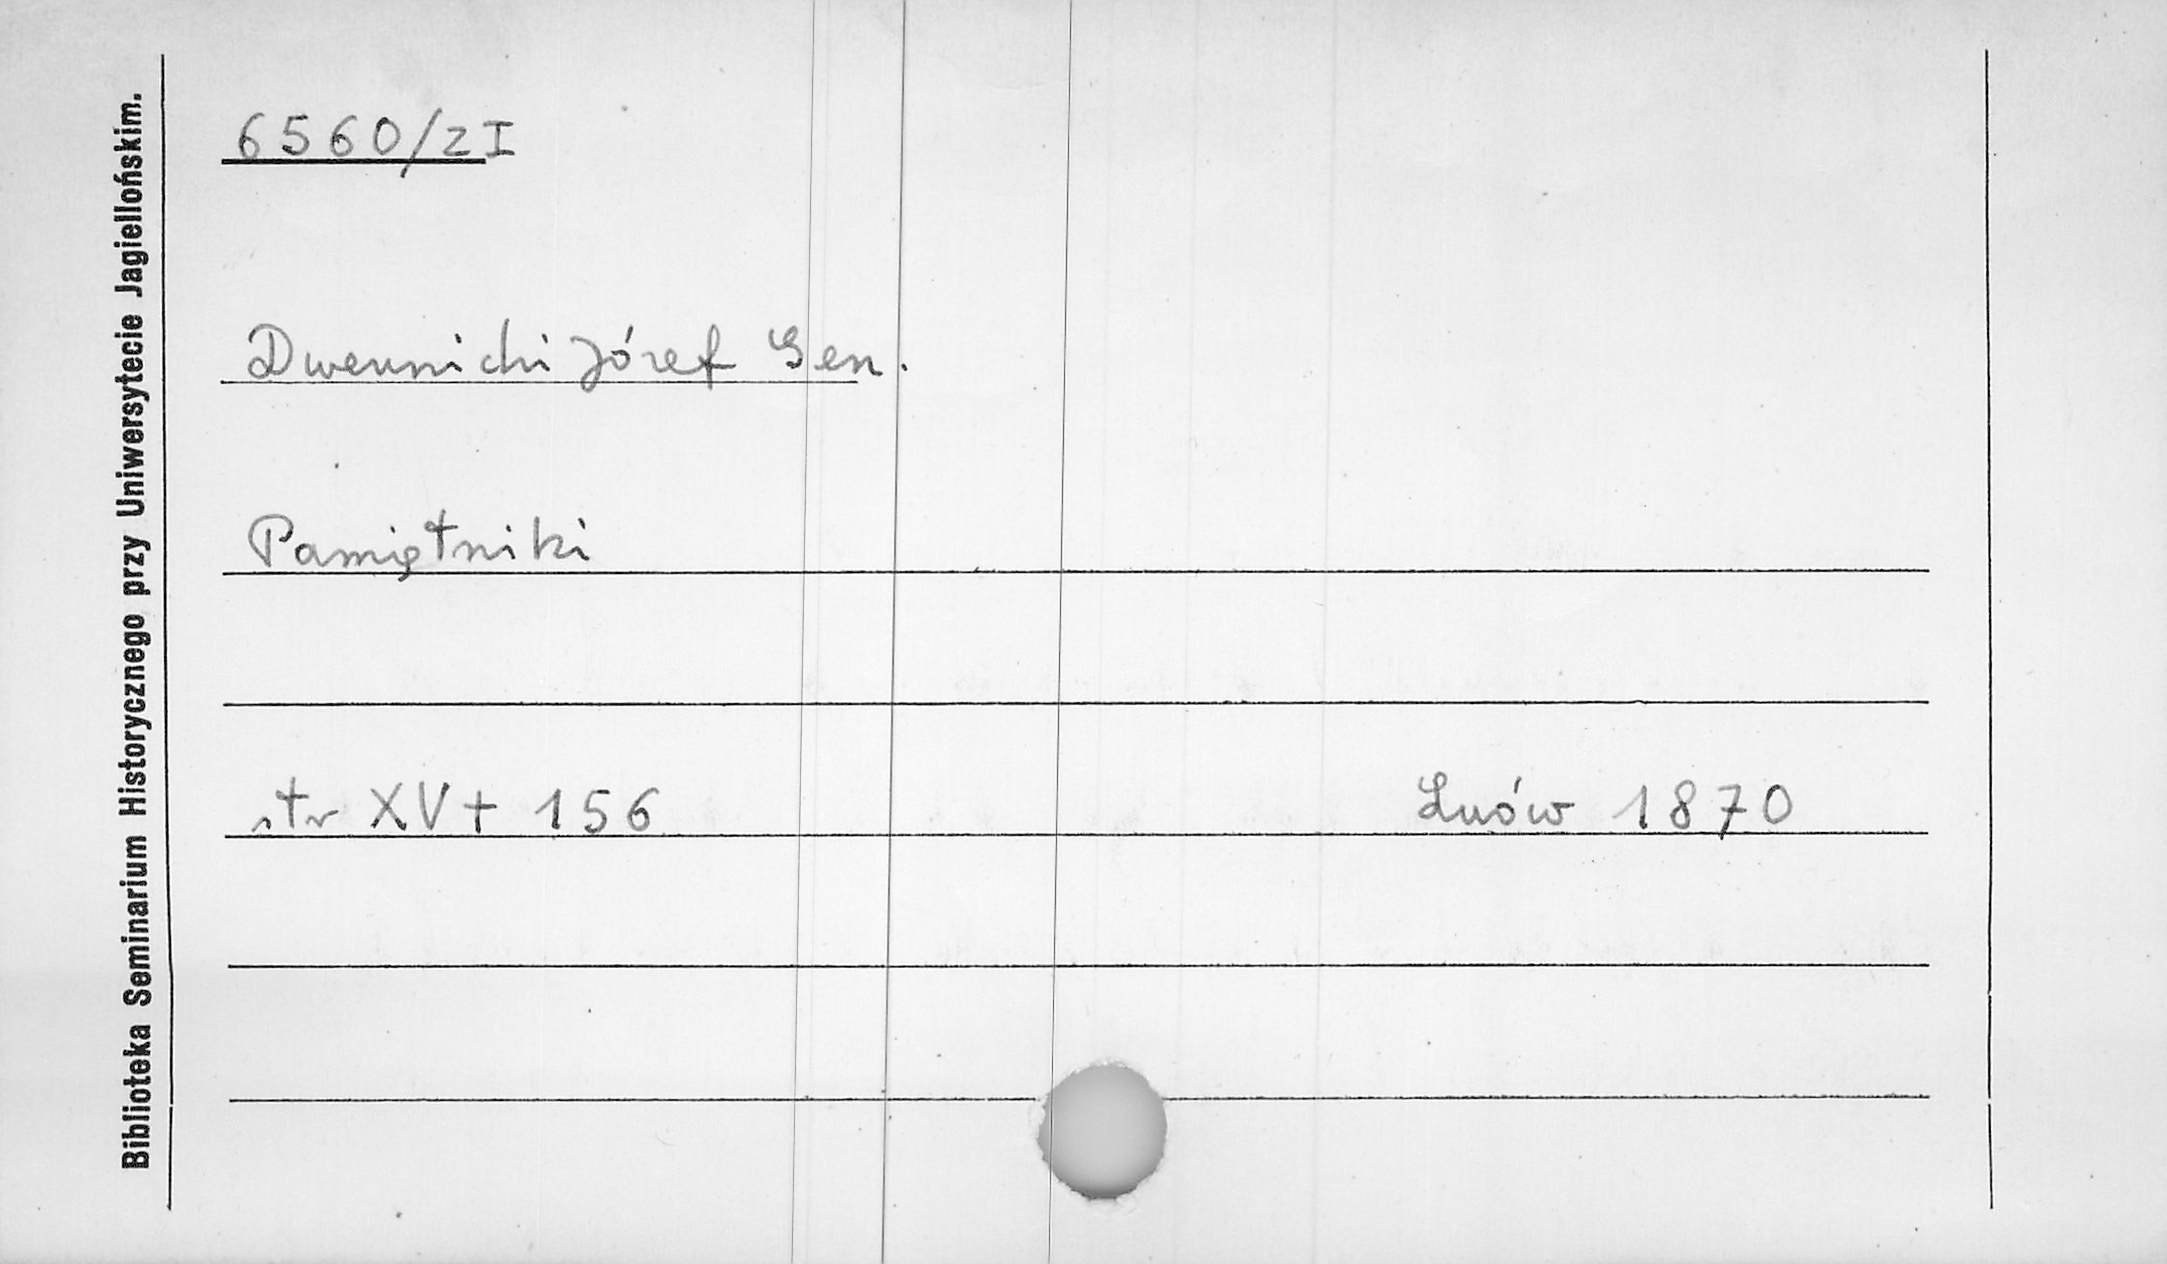 Biblioteka Seminarium Historycznego przy Uniwersytecie Jagiellońskim.
6560/z I
Dwernicki Józef Gen.
Pamiętniki
str XV + 156 Lwów 1870